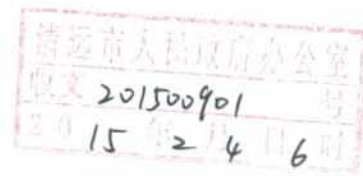 清远市人民政府办公室
收文 201500901 号
2015年2月4日6时